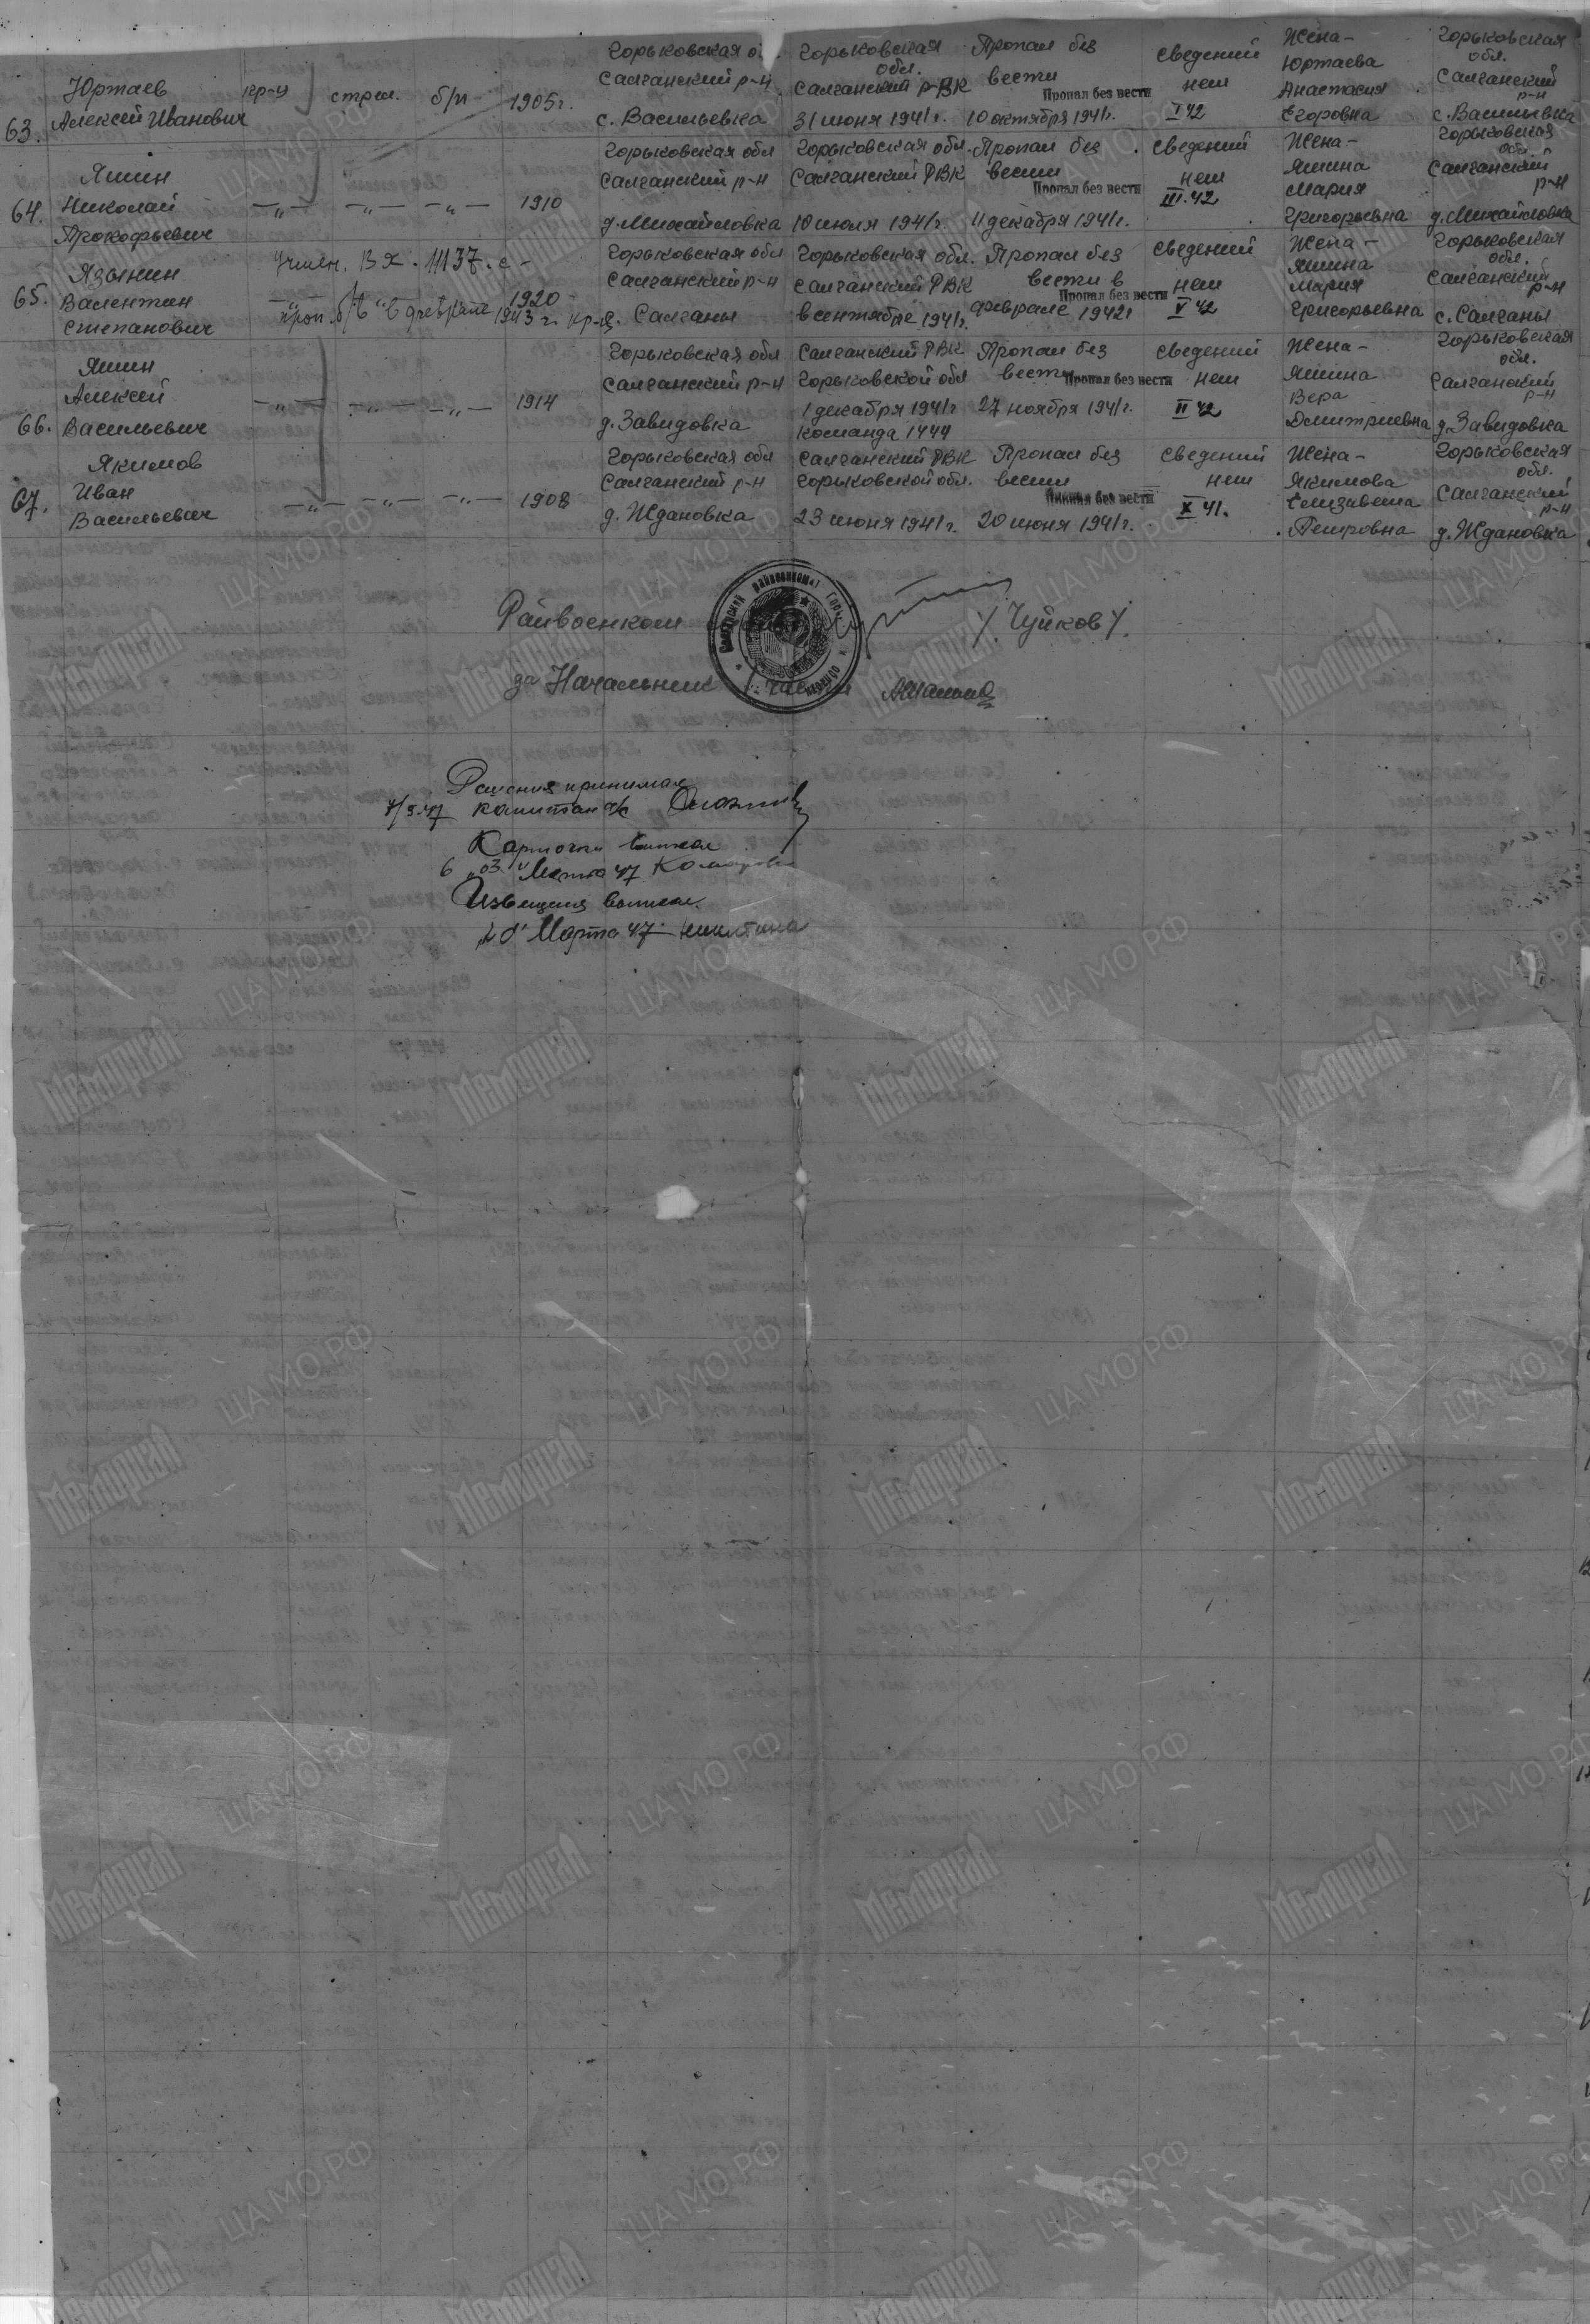 63. Юртаев Алексей Иванович кр-ц стрел. б/п 1905г. Горьковская Салганский р-н с. Васильевка Горьковская обл. Салганский РВК 31 июня 1941г. Пропал без вести 10 октября 1941г. Пропал без вести сведений нет I 42 Жена - Юртаева Анастасия Егоровна Горьковская обл. Салганский р-н с. Васильевка
64. Яшин Николай Прокофьевич —„— —„— —„— 1910 Горьковская обл Салганский р-н д. Михайловка Горьковская обл. Салганский РВК 10 июля 1941г. Пропал без вести 11 декабря 1941г. Пропал без вести сведений нет III.42 Жена - Яшина Мария Григорьевна Горьковская обл. Салганский р-н д. Михайловка
65. Язынин Валентин Степанович 1920 Горьковская обл Салганский р-н с. Салганы Горьковская обл. Салганский РВК в сентябре 1941г. Пропал без вести в феврале 1942г Пропал без вести сведений нет V 42 Жена - Яшина Мария Григорьевна Горьковская обл. Салганский р-н с. Салганы
проп. б/в в феврале 1943 г. кр-ц
66. Яшин Алексей Васильевич —„— —„— —„— 1914 Горьковская обл Салганский р-н д. Завидовка Салганский РВК Горьковской обл 1 декабря 1941г команда 1444 Пропал без вести 27 ноября 1941г. Пропал без вести сведений нет II 42 Жена - Яшина Вера Дмитриевна Горьковская обл. Салганский р-н д. Завидовка
67. Якимов Иван Васильевич —„— —„— —„— 1908 Горьковская обл Салганский р-н д. Ждановка Салганский РВК Горьковской обл. 23 июня 1941г. Пропал без вести 20 июня 1941г. Пропал без вести сведений нет X 41. Жена - Якимова Елизавета Петровна Горьковская обл. Салганский р-н д. Ждановка
Райвоенком / Чуйков /.
Начальник части
Решения принимал
капитан а/с
Карточки выписал
6 „03" Марта 47
Извещения выписал.
Марта 47. Никитина
ЦА МО РФ
Мемориал